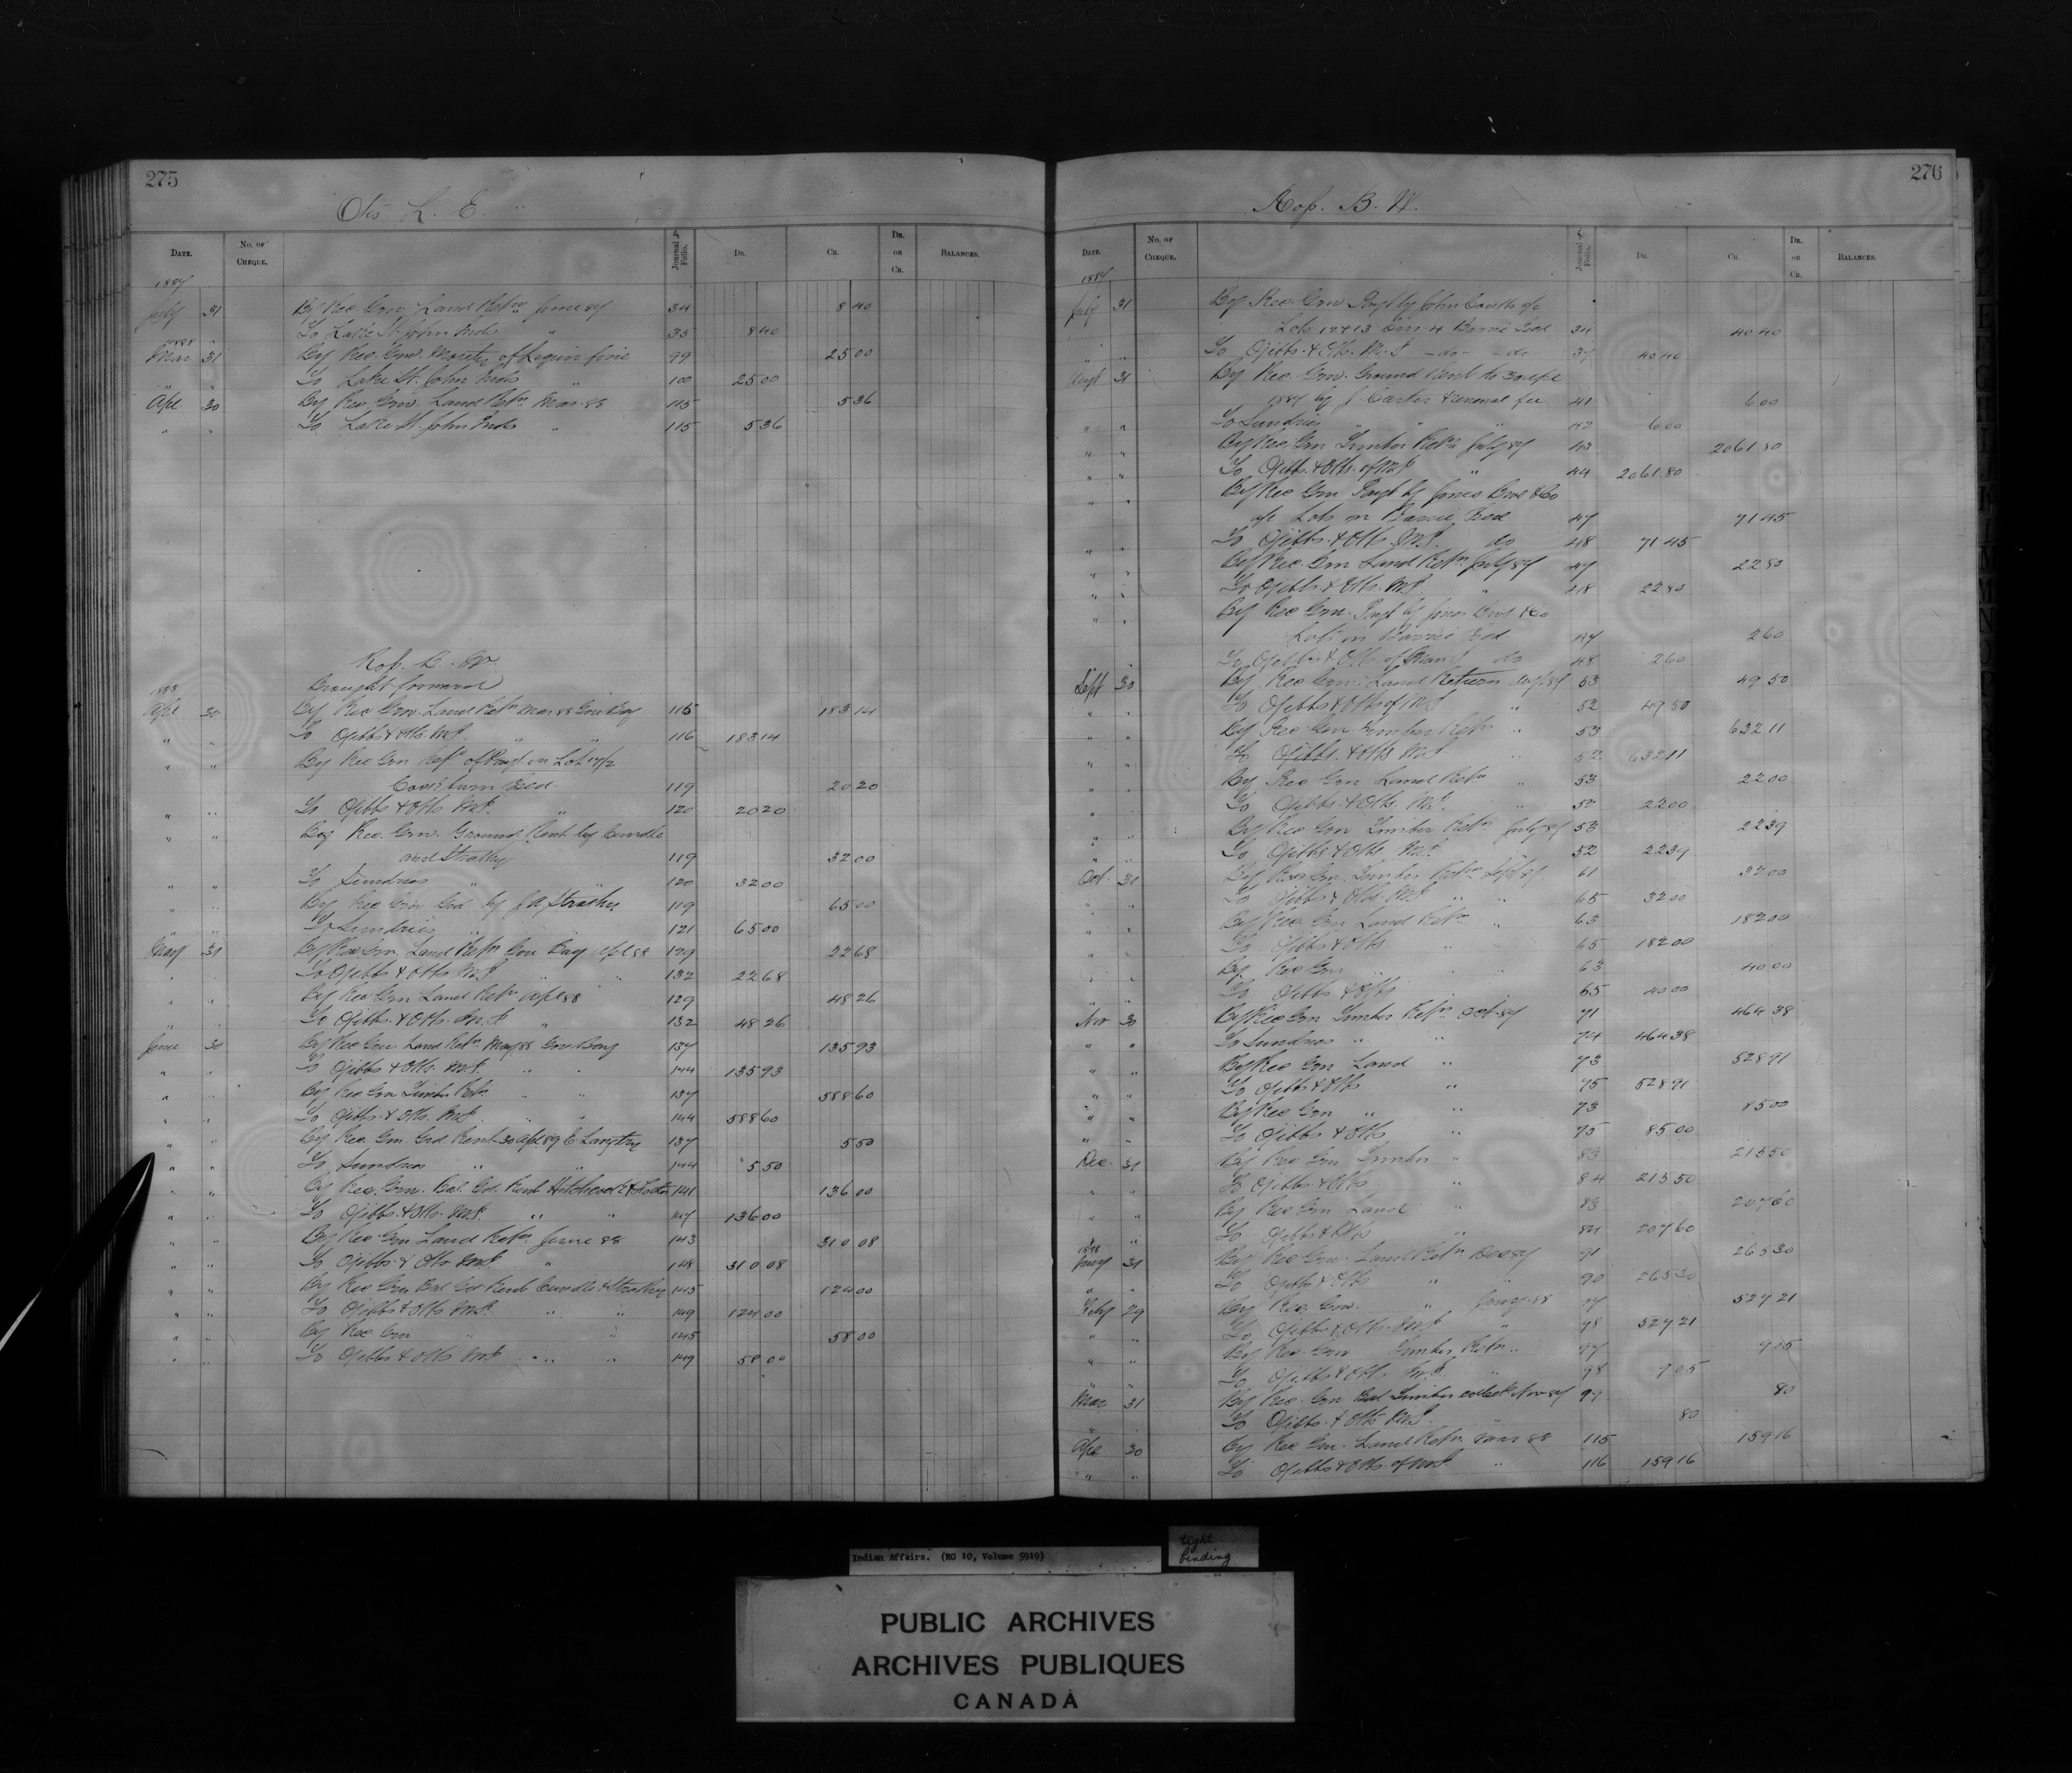 275
Otis L. E.
DATE. No. OF CHEQUE. Journal Folio. DR. CR. DR. OR CR. BALANCES.
1887
July 31 By Rec. Gen. Land Retn June 87 34 8 40
" To Lake St. John Inds " 35 8 40
1888
Mar 31 By Rec. Gen. of Liquor fine 99 25 00
" " To Lake St. John Inds " 100 25 00
Apl 30 By Rec. Gen. Land Retn Mar. 88 115 5 36
" " To Lake St. John Inds " 115 5 36
Ross. B. W.
Brought forward
1888
Apl 30 By Rec Gen. Land Retn Mar 88 Gore Bay 115 183 14
" " To Ojibb & Otts M.I. " " 116 183 14
" " By Rec Gen of in Lot
119 20 20
" " To Ojibb & Otts M.I. " 120 20 20
" " By Rec. Gen. Ground Rent by Cundle
and Strathy 119 32 00
" " To Sundries " 120 32 00
" " By Rec Gen Grd by Strathy 119 65 00
" " To Sundries " 121 65 00
May 31 By Rec Gen Land Retn Gore Bay Apl 88 129 22 68
" " To Ojibb & Otts M.I. " " 132 22 68
" " By Rec Gen Land Retn Apl 88 129 48 26
" " To Ojibb & Otts M.I. " 132 48 26
June 30 By Rec Gen Land Retn May 88 Gore Bay 137 135 93
" " To Ojibb & Otts M.I. " " 144 135 93
" " By Rec Gen Timber Retn " " 137 588 60
" " To Ojibb & Otts M.I. " " 144 588 60
" " By Rec Gen Grd Rent 30 Apl 89 E Langtry 137 5 50
" " To Sundries " " 144 5 50
" " By Rec. Gen. Bal. Gd. Rent Hitchcock & 141 136 00
" " To Ojibb & Otts M.I. " " 147 136 00
" " By Rec Gen Land Retn June 88 143 310 08
" " To Ojibb & Otts M.I. " 148 310 08
" " By Rec Gen Bal Gd Rent Cundle & Strathy 145 124 00
" " To Ojibb & Otts M.I. " " 149 124 00
" " By Rec Gen " " 145 58 00
" " To Ojibb & Otts M.I. " " 149 58 00
276
Ross. B. W.
DATE. No. OF CHEQUE. Journal Folio. DR. CR. DR. OR CR. BALANCES.
1887
July 31 By Rec. Gen Payt by John
Lots 12 & 13 Con. 4 Barrie Isld 34 40 40
" " To Ojibb. & Otts. M.I. - do - - do 37 40 40
Augt 31 By Rec Gen. Ground Rent to 30 Apl
by J. Carter & renewal fee 41 6 00
" " To Sundries " " " 42 6 00
" " By Rec Gen Timber Retn July 87 43 2061 80
" " To Ojibb. & Otts. of M.I. " 44 2061 80
" " By Rec Gen Payt by Jones Bros & Co
a/c Lots in Barrie Isld 47 71 45
" " To Ojibb. & Otts. M.I. do 48 71 45
" " By Rec. Gen Land Retn July 87 47 22 80
" " To Ojibb. & Otts. M.I. " 48 22 80
" " By Rec Gen. Payt by Jones Bros & Co
Lots in Barrie Isld 47 2 60
To Ojibbs & Otts of do 48 2 60
Sept 30 By Rec Gen. Land Return Aug 87 53 49 50
" " To Ojibbs & Otts of M.I. " 52 49 50
" " By Rec Gen Timber Retn " 53 632 11
" " To Ojibbs. & Otts M.I. " 52 632 11
" " By Rec Gen Land Retn " 53 22 00
" " To Ojibbs & Otts. M.I. " 52 22 00
" " By Rec Gen Timber Retn July 87 53 22 39
" " To Ojibbs & Otts. M.I. " 52 22 39
Oct. 31 By Rec Gen. Timber Retn Sept 87 61 32 00
" " To Ojibbs & Otts. M.I. " " 65 32 00
" " By Rec Gen Land Retn " 63 182 00
" " To Ojibb & Otts " " 65 182 00
" " By Rec Gen " " 63 40 00
" " To Ojibb & Otts " 65 40 00
Nov 30 By Rec Gen Timber Retn Oct 87 71 464 38
" " To Sundries " " 74 464 38
" " By Rec Gen Land " 73 528 91
" " To Ojibb & Otts " 75 528 91
" " By Rec Gen " " 73 85 00
" " To Ojibb & Otts " 75 85 00
Dec. 31 By Rec Gen Timber " 83 215 50
" " To Ojibb & Otts " 84 215 50
" " By Rec Gen Land " 83 207 60
" " To Ojibb & Otts " 84 207 60
1888
Jany 31 By Rec Gen. Land Retn Dec 87 91 265 30
" " To Ojibb & Otts " " 90 265 30
Feby 29 By Rec. Gen. " Jany. 88 97 527 21
" " To Ojibb & Otts. M.I. " 98 527 21
" " By Rec. Gen Timber Retn " 97
" " To Ojibb & Otts M.I. " 98
Mar 31 By Rec. Gen Bal Timber collect Nov 87 99 80
" To Ojibb. & Otts M.I. " 80
Apl 30 By Rec Gen. Land Retn 88 115 159 16
" " To Ojibb & Otts of M.I. " 116 159 16
Indian Affairs. (RG 10, Volume 5919)
tight
binding
PUBLIC ARCHIVES
ARCHIVES PUBLIQUES
CANADA